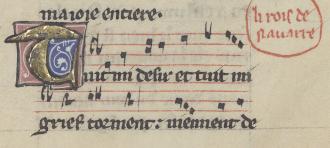 ma ioie entiere.
li rois de
nauarre
Tuit mi desir et tuit mi
grief torment: uienent de